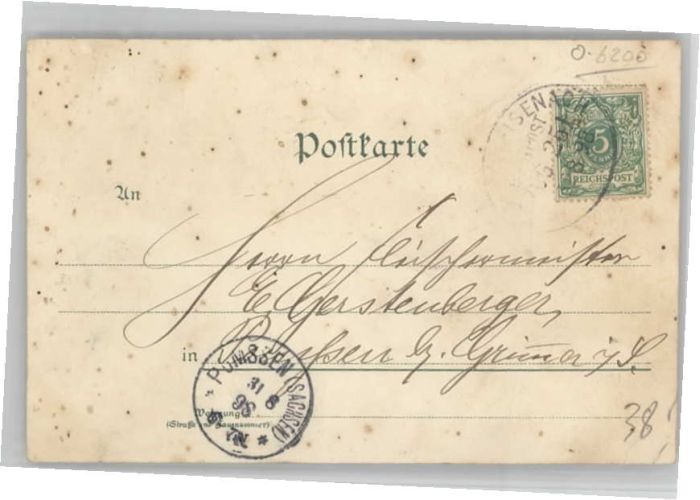 O-6200
5
REICHSPOST
Postkarte
An
Herrn Tischlermeister
E. Gerstenberger,
in Pomssen b/. Grimma i/S.
POMSSEN (SACHSEN)
31 8
98
Wohnung
(Straße und Hausnummer)
38